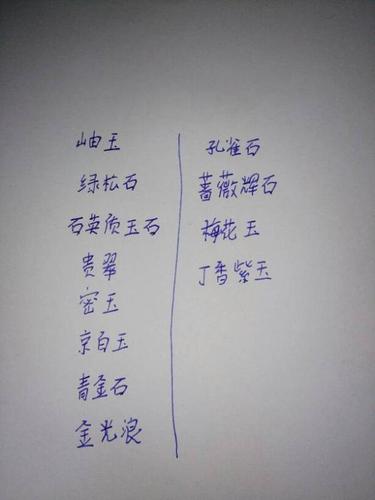 岫玉
绿松石
石英质玉石
贵翠
密玉
京白玉
青金石
金光浪
孔雀石
蔷薇辉石
梅花玉
丁香紫玉